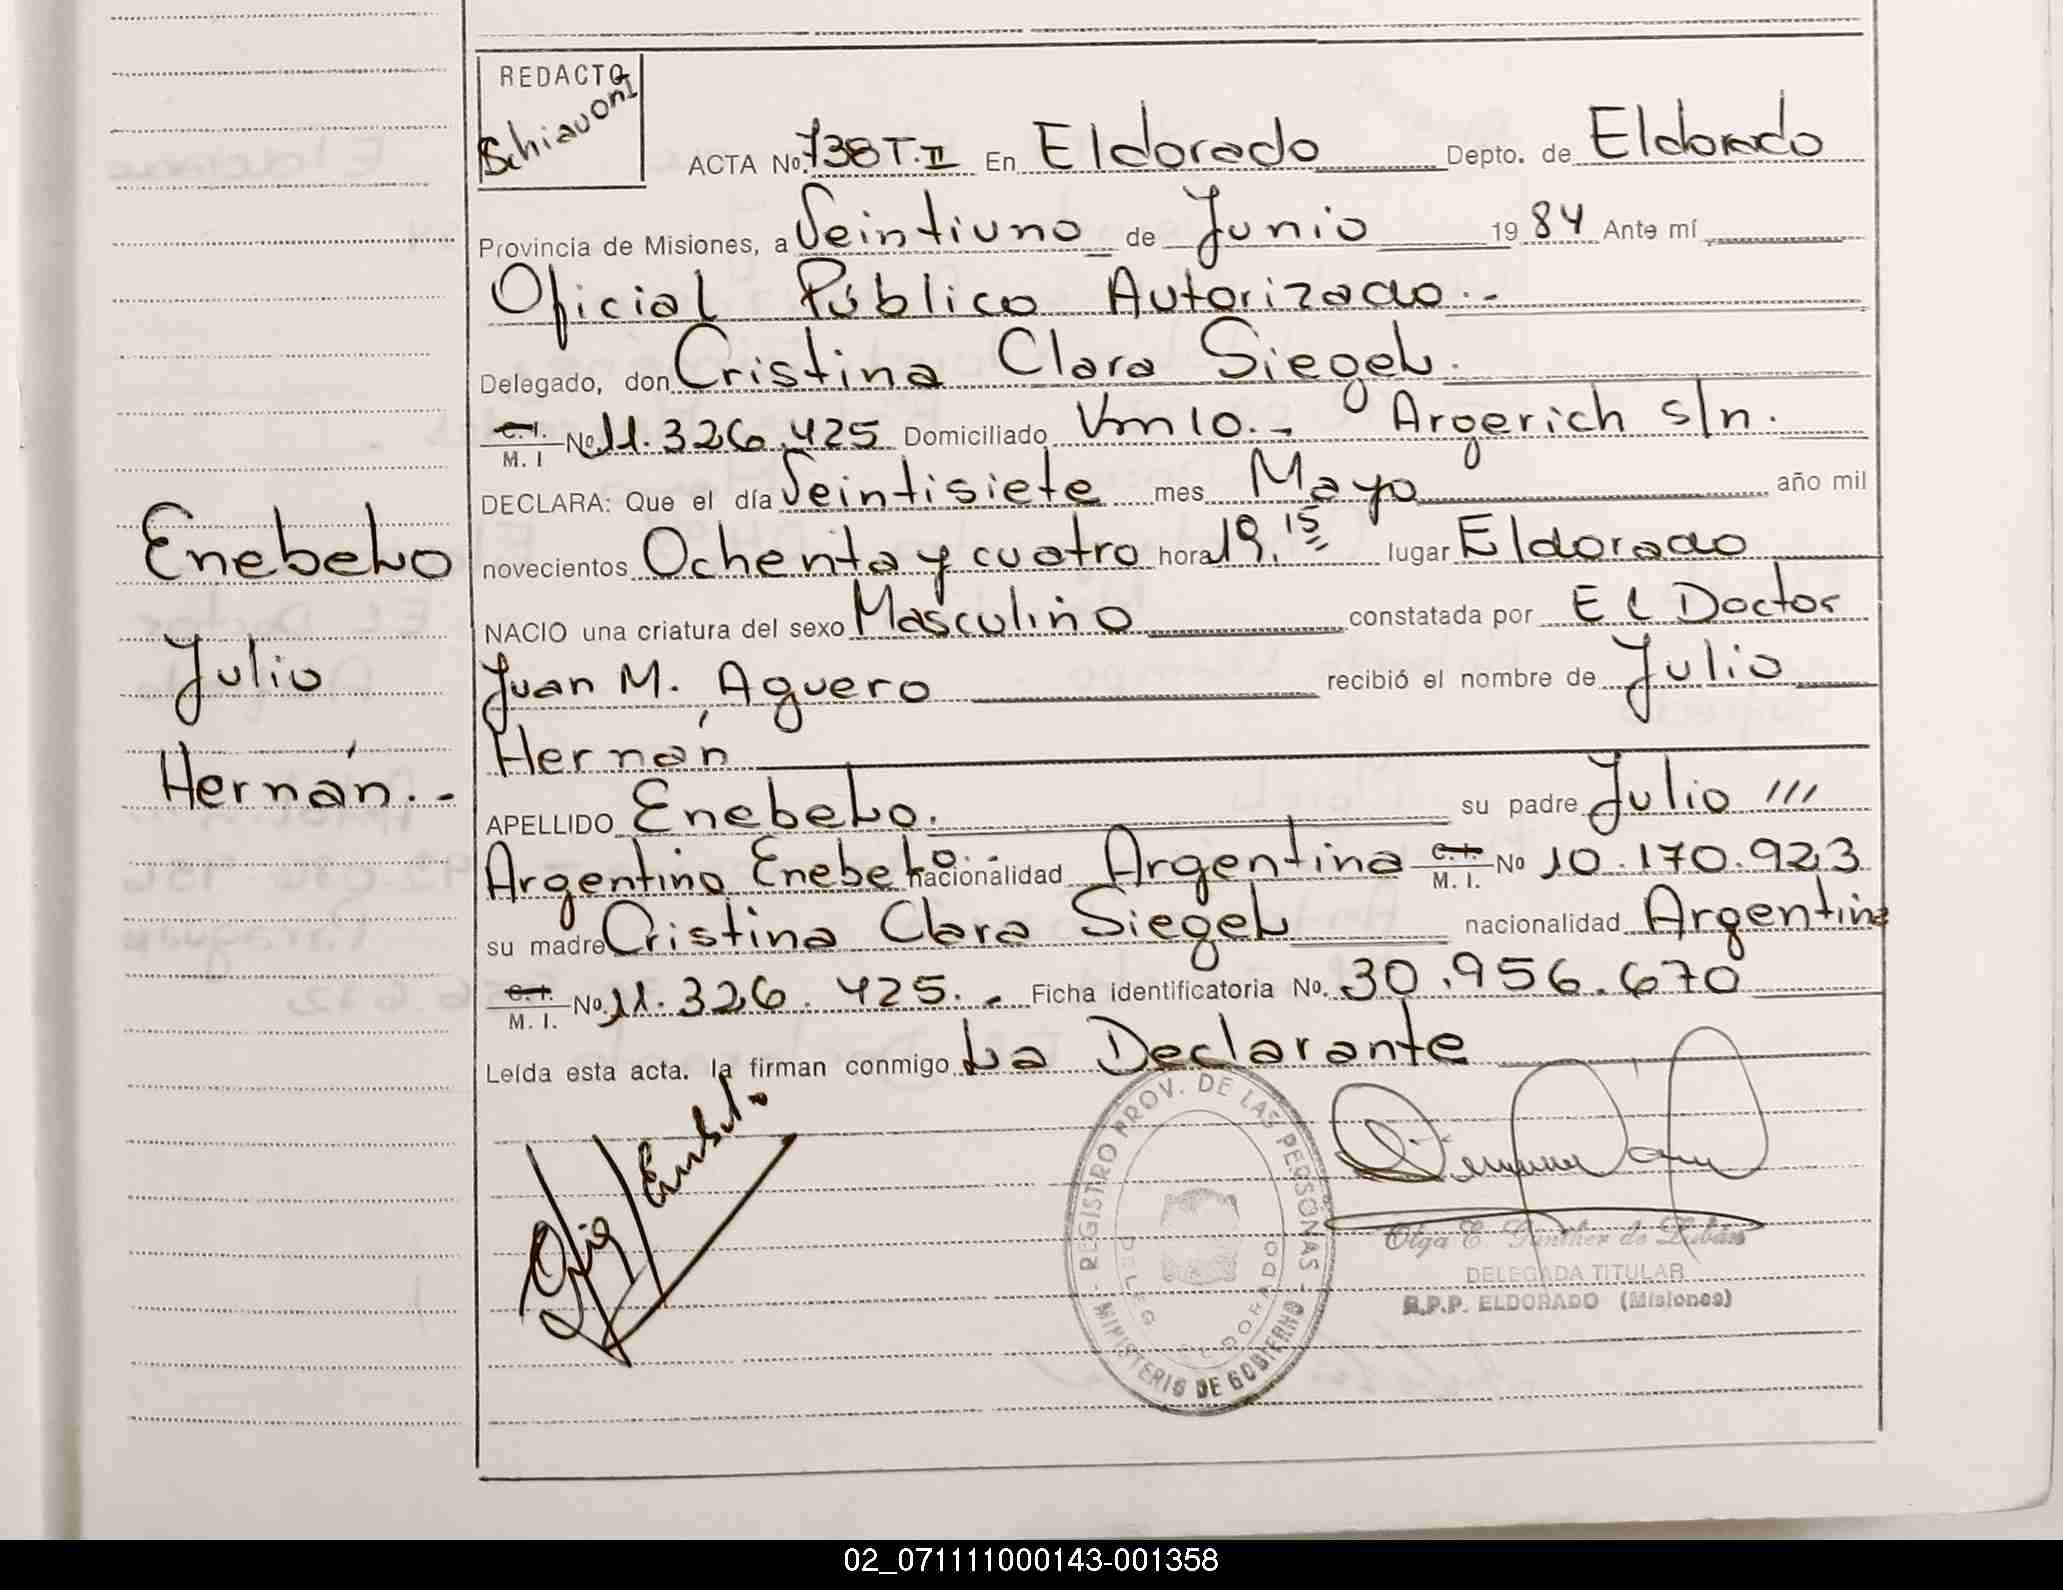 REDACTO
Schiavoni
ACTA No. 738 T.II En Eldorado Depto. de Eldorado
Provincia de Misiones, a Veintiuno de Junio 1984 Ante mí
Oficial Público Autorizado.-
Delegado, don Cristina Clara Siegel.
C.I. M. I No. 11.326.425 Domiciliado Km 10.- Argerich s/n.
DECLARA: Que el día Veintisiete mes Mayo año mil
novecientos Ochenta y cuatro hora 19.15 lugar Eldorado
NACIO una criatura del sexo Masculino constatada por El Doctor
Juan M. Aguero recibió el nombre de Julio
Hernán
APELLIDO Enebelo. su padre Julio ///
Argentino Enebelo.- nacionalidad Argentina C.I. M. I. No 10.170.923
su madre Cristina Clara Siegel nacionalidad Argentina
C.I. M. I. No. 11.326.425.- Ficha identificatoria No. 30.956.670
Leída esta acta. la firman conmigo La Declarante
Enebelo
Julio
Hernán.-
REGISTRO PROV. DE LAS PERSONAS - MINISTERIO DE GOBIERNO -
DELEG. ELDORADO
Olga E. Günther de Lubán
DELEGADA TITULAR
R.P.P. ELDORADO (Misiones)
02_071111000143-001358